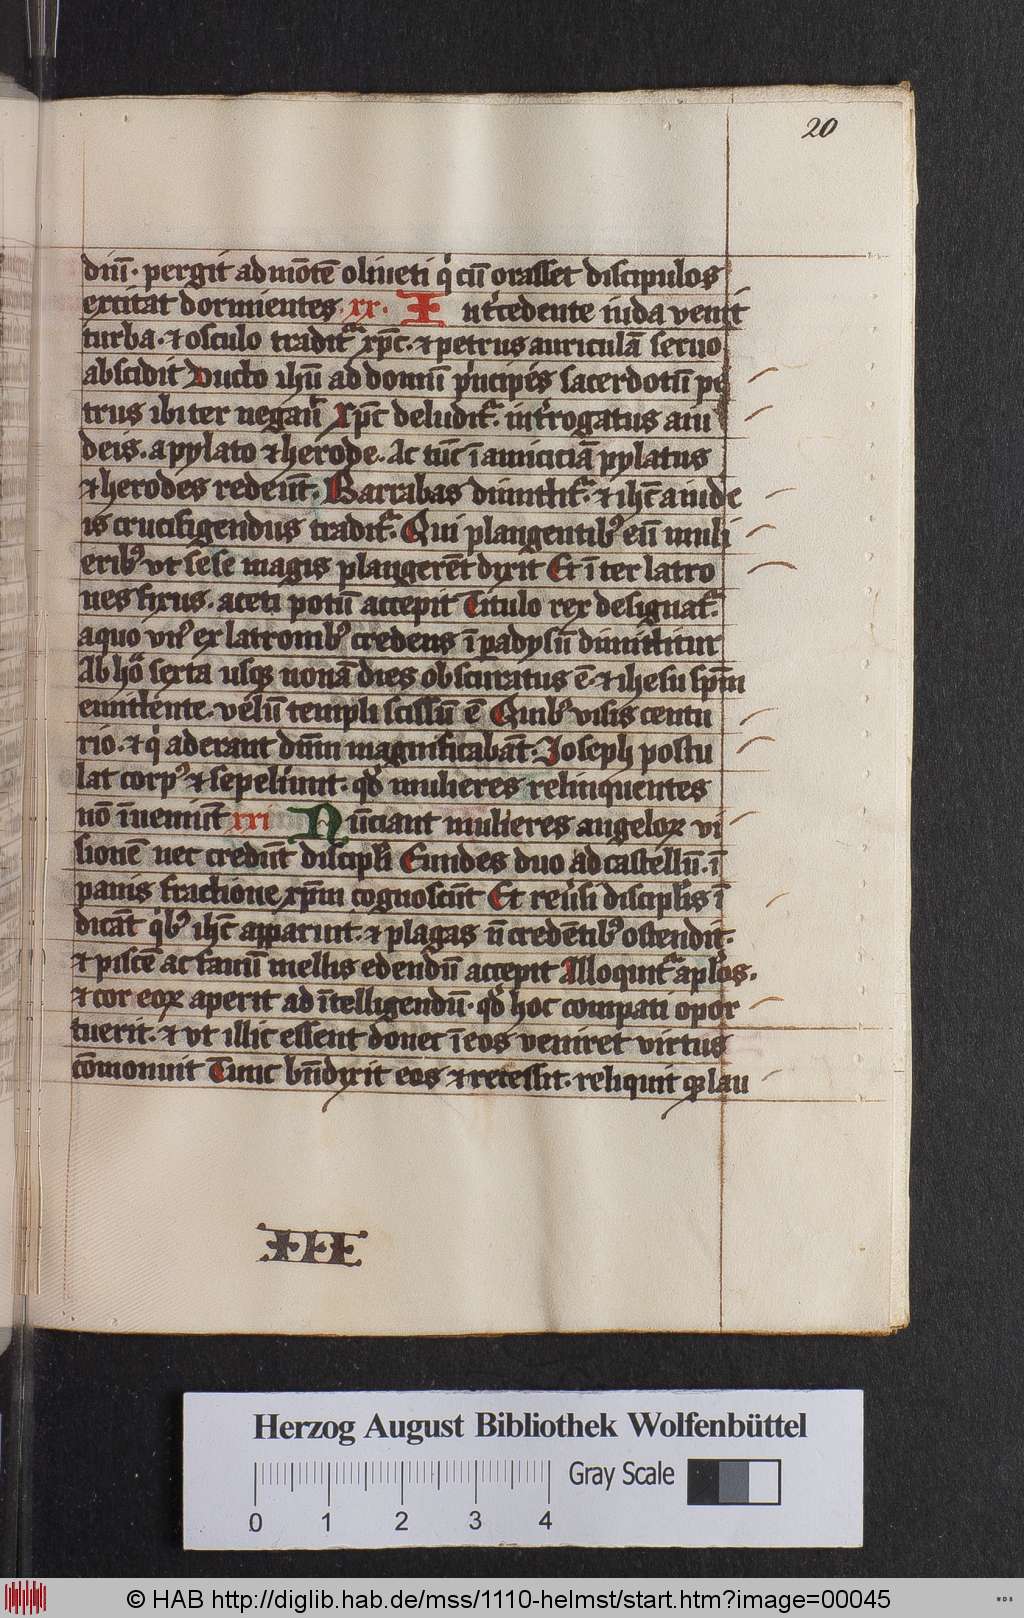 20
diū · pergit ad mōtē oliueti q̇ cū orasset discipulos
excitat dormientes · xx · Int̛cedente iuda venit
turba · ⁊ osculo tradit᷑ xp̄c · ⁊ petrus auriculā seruo
abscidit Ducto ihū ad domū p̛ncipes sacerdotū pe
trus ibi ter negaư Xp̄c deludit᷑ · int̛rogatus a iu
deis · a pylato ⁊ herode · Ac tūc ī amiciciā pylatus
⁊ herodes redeūt · Barrabas dimittit᷑ · ⁊ ihc̄ a iude
is crucifigendus tradit᷑ · Qui plangentibꝰ eū muli
eribꝰ vt sese magis plangerēt dixit Et ī ter latro
nes fixus · aceti potū accepit Titulo rex designat᷑ ·
a quo vnꝰ ex latronibꝰ credens ī padysū dimittitur
Ab ho᷑ sexta usqꝫ nonā dies obscuratus ē · ⁊ ihesu sp̄m
emittente · velū templi scissū ē Quibꝰ visis centu
rio · ⁊ q̇ aderant dn̄m magnificabāt · Joseph postu
lat corpꝰ ⁊ sepeliunt · qđ mulieres relinquentes
nō īueniūt xxi Nūciant mulieres angeloꝝ vi
sionē nec credūt discipli Eundes duo ad castellū · ī
panis fractione xp̄m cognoscūt Et reưsi disciplis ī
dicāt q̇bꝰ ihc̄ apparuit · ⁊ plagas n̄ credētibꝰ ostendit ·
⁊ piscē ac fauū mellis edendū accepit Alloquit᷑ aplōs ·
⁊ cor eoꝝ aperit ad ītelligendū · qđ hoc compati opor
tuerit · ⁊ vt illic essent donec ī eos veniret virtus
cōmonuit Tunc bn̄dixit eos ⁊ recessit · reliquit ꝙ lau
III
Herzog August Bibliothek Wolfenbüttel
Gray Scale
0 1 2 3 4
© HAB http://diglib.hab.de/mss/1110-helmst/start.htm?image=00045